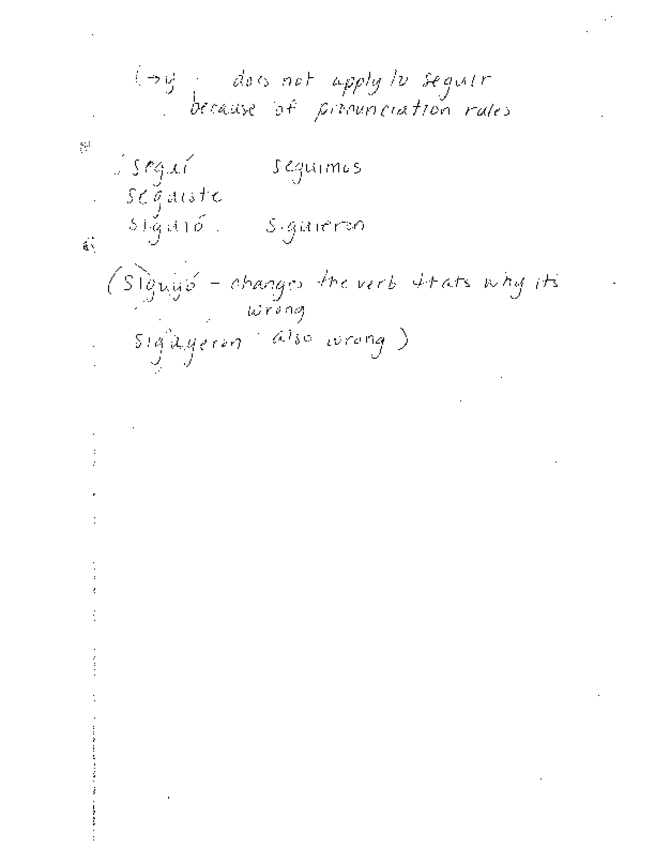 i→y does not apply to seguir
because of pronunciation rules
seguí seguimos
seguiste
siguió siguieron
(siguyó - changes the verb thats why its
wrong
siguyeron also wrong)